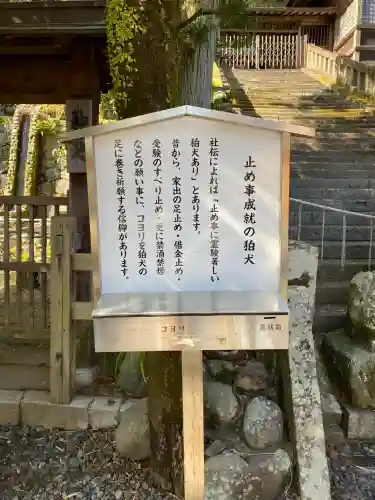 止め事成就の狛犬
社伝によれば「止め事に霊験著しい
狛犬あり」とあります。
昔から、家出の足止め・借金止め・
受験のすべり止め・さらに禁酒禁煙
などの願い事に、コヨリを狛犬の
足に巻き祈願する信仰があります。
コヨリ
賽銭箱